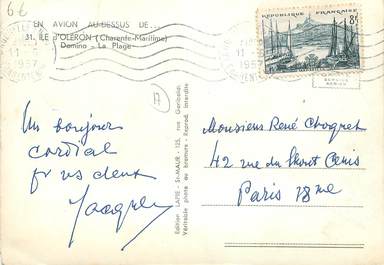 6€
EN AVION AU-DESSUS DE...
31. ILE D'OLERON (Charente-Maritime)
Domino - La Plage
1957
1957
REPUBLIQUE FRANÇAISE
8f
SERVICE
Un bonjour
cordial
pr vs deux
Jacques
Edition LAPIE - St-MAUR - 125, rue Garibaldi
Véritable photo au bromure - Reprod. interdite
Monsieur René Choquet
42 rue du Mont Cenis
Paris 18me